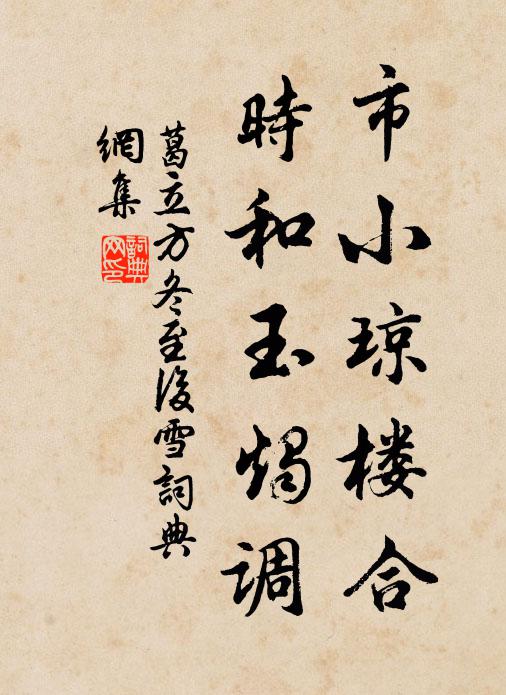 市小琼楼合
時和玉燭调
葛立方冬至後雪詞典
網集
詞典
网印